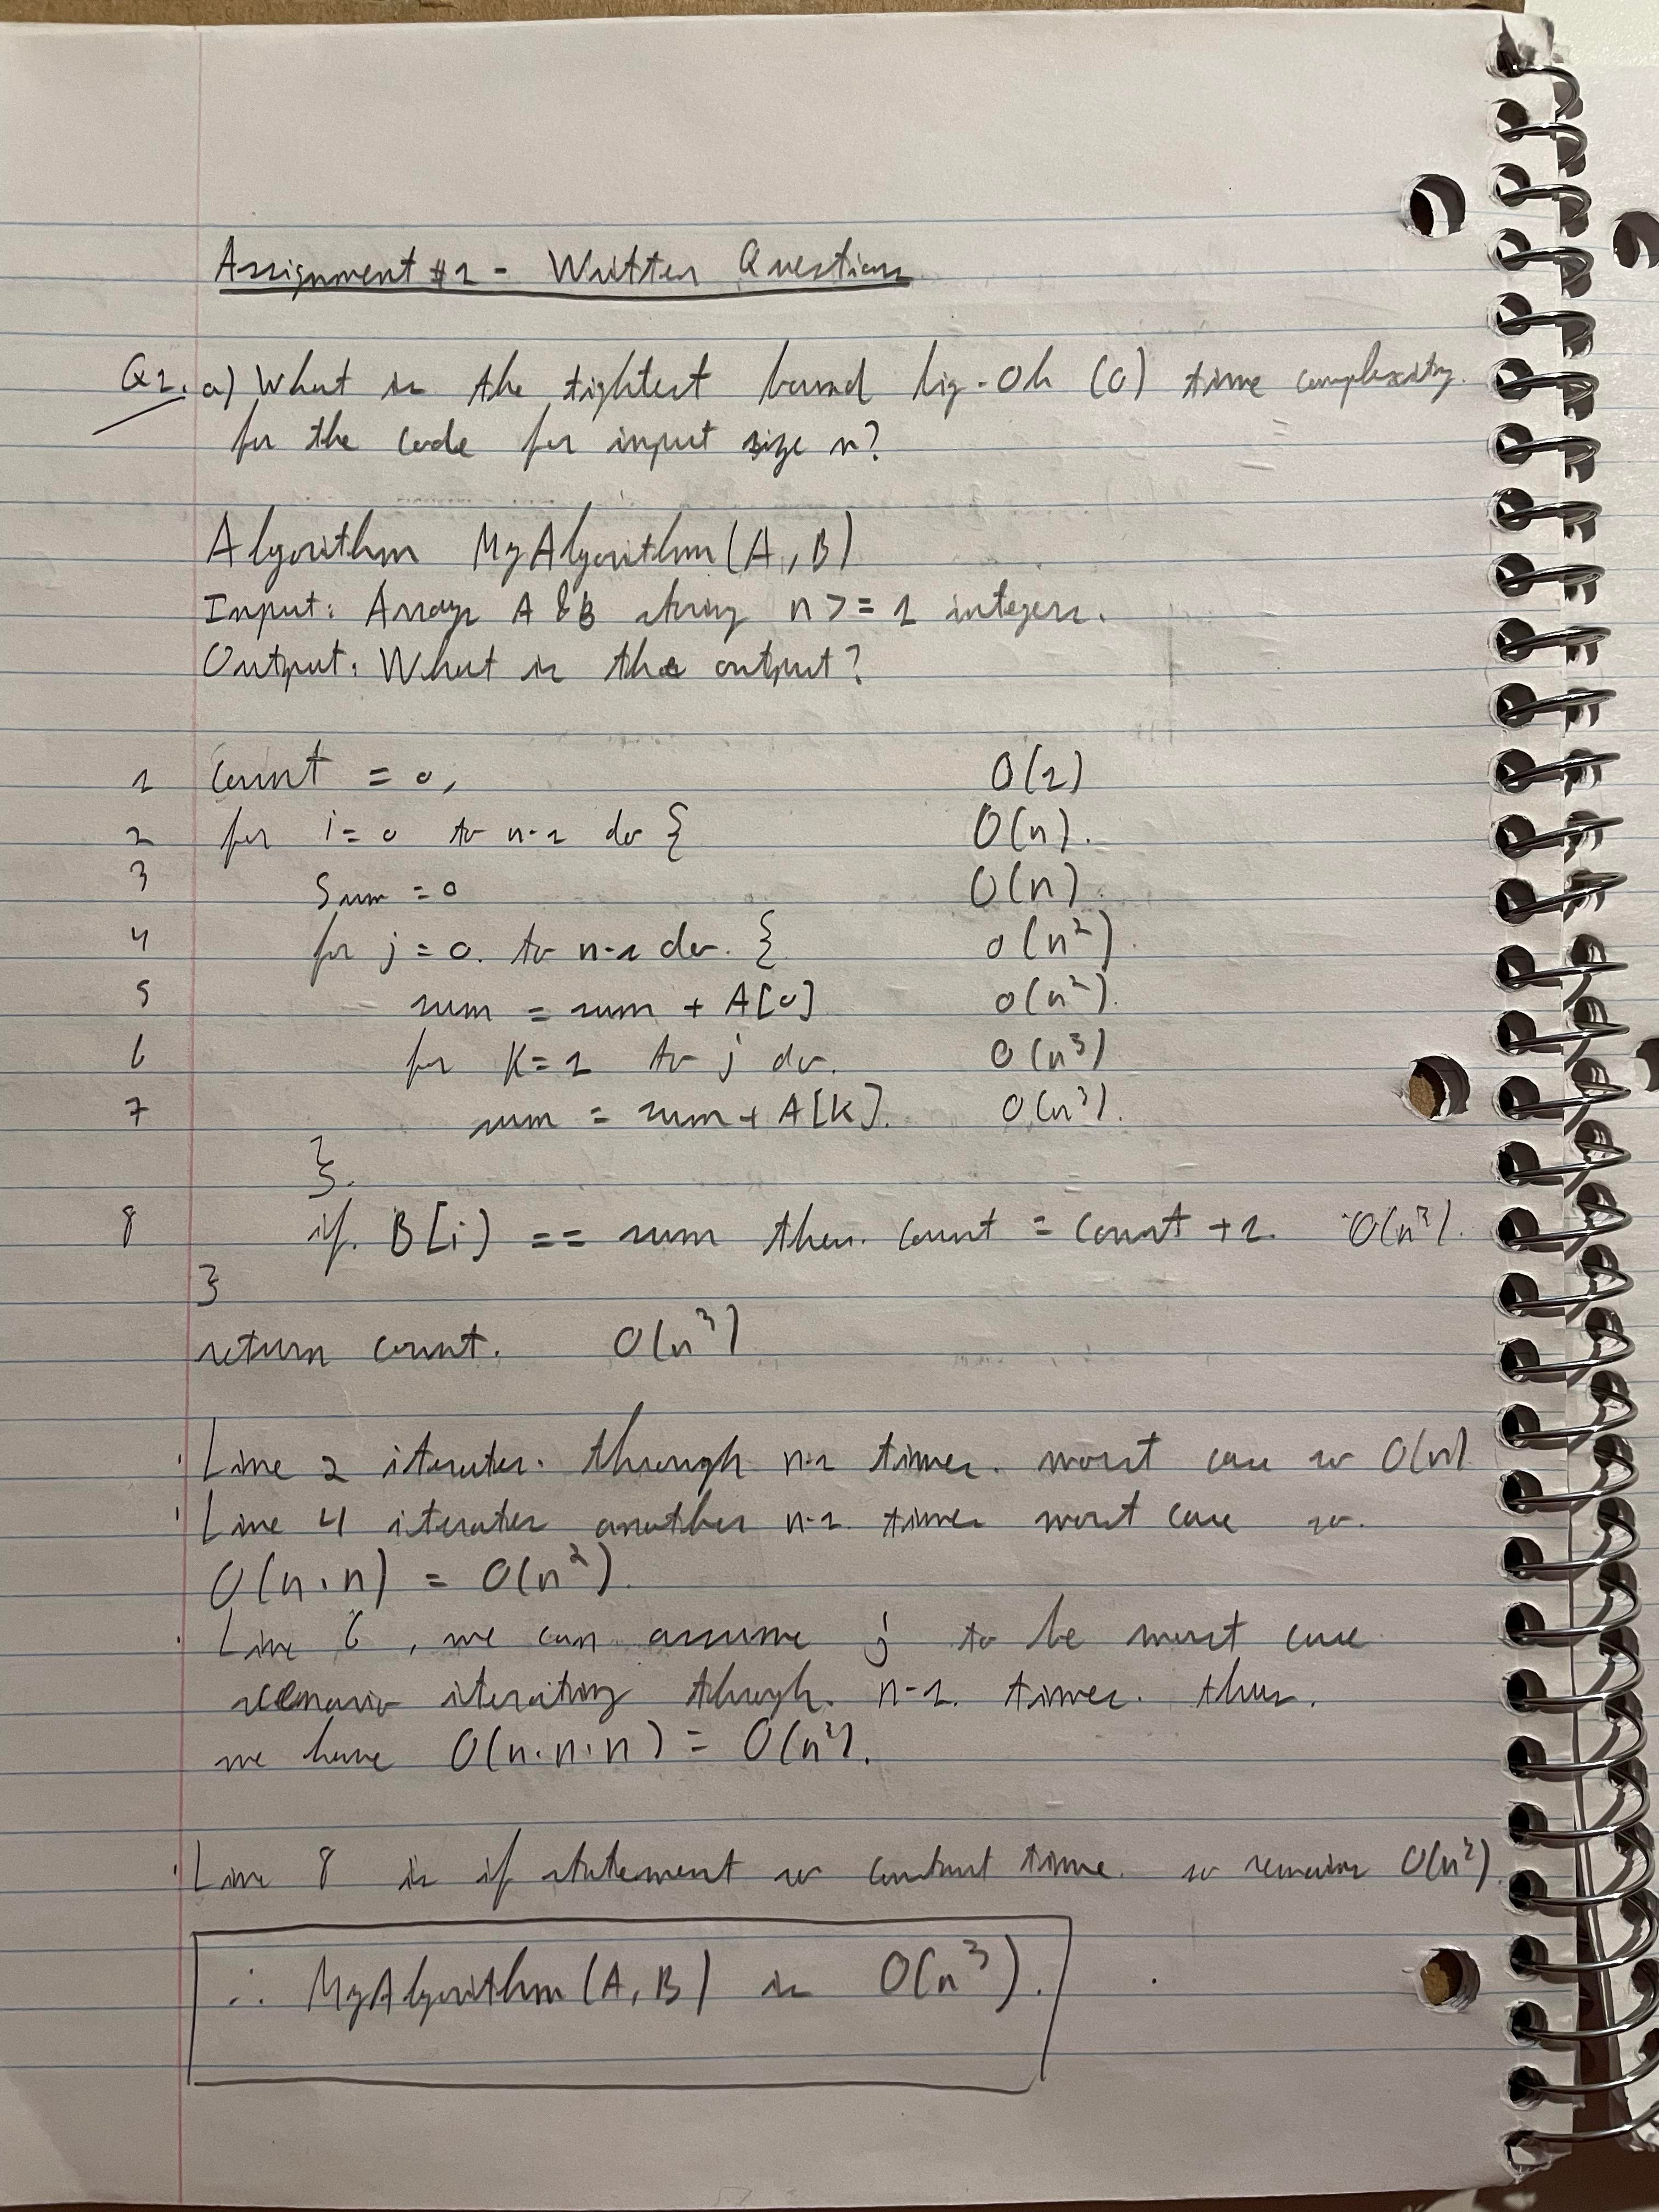 Assignment #1 - Written Questions
Q1. a) What is the tightest bound big-Oh (O) time complexity
for the code for input size n?
Algorithm MyAlgorithm(A,B)
Input: Arrays A & B storing n >= 1 integers.
Output: What is the output?
1 count = 0, O(1)
2 for i=0 to n-1 do { O(n).
3 Sum = 0 O(n).
4 for j=0. to n-1 do. { O(n²).
5 sum = sum + A[0] O(n²).
6 for K=1 to j do. O(n³)
7 sum = sum + A[K]. O(n³).
}.
8 if. B[i] == sum then. count = count +1. O(n³).
}
return count. O(n³)
· Line 2 iterates. through n-1 times. worst case so O(n)
· Line 4 iterates another n-1. times worst case so.
O(n·n) = O(n²).
· Line 6, we can assume j to be worst case
scenario iterating though. n-1. times. thus.
we have O(n·n·n) = O(n³).
· Line 8 is if statement so constant time. so remains O(n³).
∴ MyAlgorithm(A,B) is O(n³).